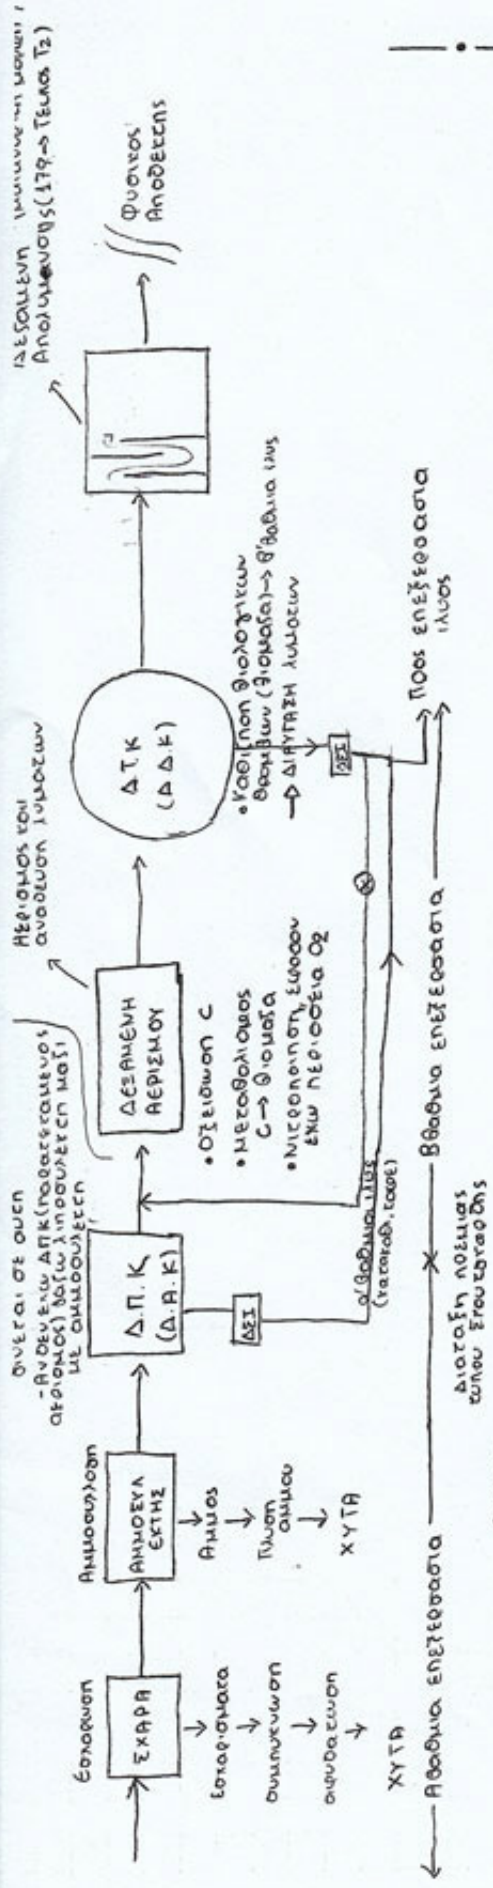 Εσχαρωση
ΣΧΑΡΑ
Εσχαρισματα
συμπυκνωση
αφυδατωση
ΧΥΤΑ
Αμμοσυλλογη
ΑΜΜΟΣΥΛ
ΕΚΤΗΣ
Αμμος
Πλυση
αμμου
ΧΥΤΑ
-Αν δεν εχω ΔΠΚ (παρατεταμενος
αερισμος) βαζω λιποσυλεκτη μαζι
με αμμοσυλεκτη
Δ.Π.Κ.
(Δ.Α.Κ)
α'βαθμια ιλυς
Αερισμος και
αναδευση λυματων
ΔΕΞΑΜΕΝΗ
ΑΕΡΙΣΜΟΥ
• Οξειδωση C
• Μεταβολισμος
C → βιομαζα
• Νιτροποιηση, εφοσον
εχω περισσεια O2
Δ.Τ.Κ
(Δ.Δ.Κ)
• Καθιζηση βιολογικων
θρομβων (βιομαζα) → β'βαθμια ιλυς
→ ΔΙΑΥΓΑΣΗ λυματων
Προς επεξεργασια
ιλυος
Δεξαμενη
Απολυμανσης (179 → Τευχος Τ2)
Φυσικος
Αποδεκτης
Αβαθμια επεξεργασια
Ββαθμια επεξεργασια
Διαταξη
τυπου